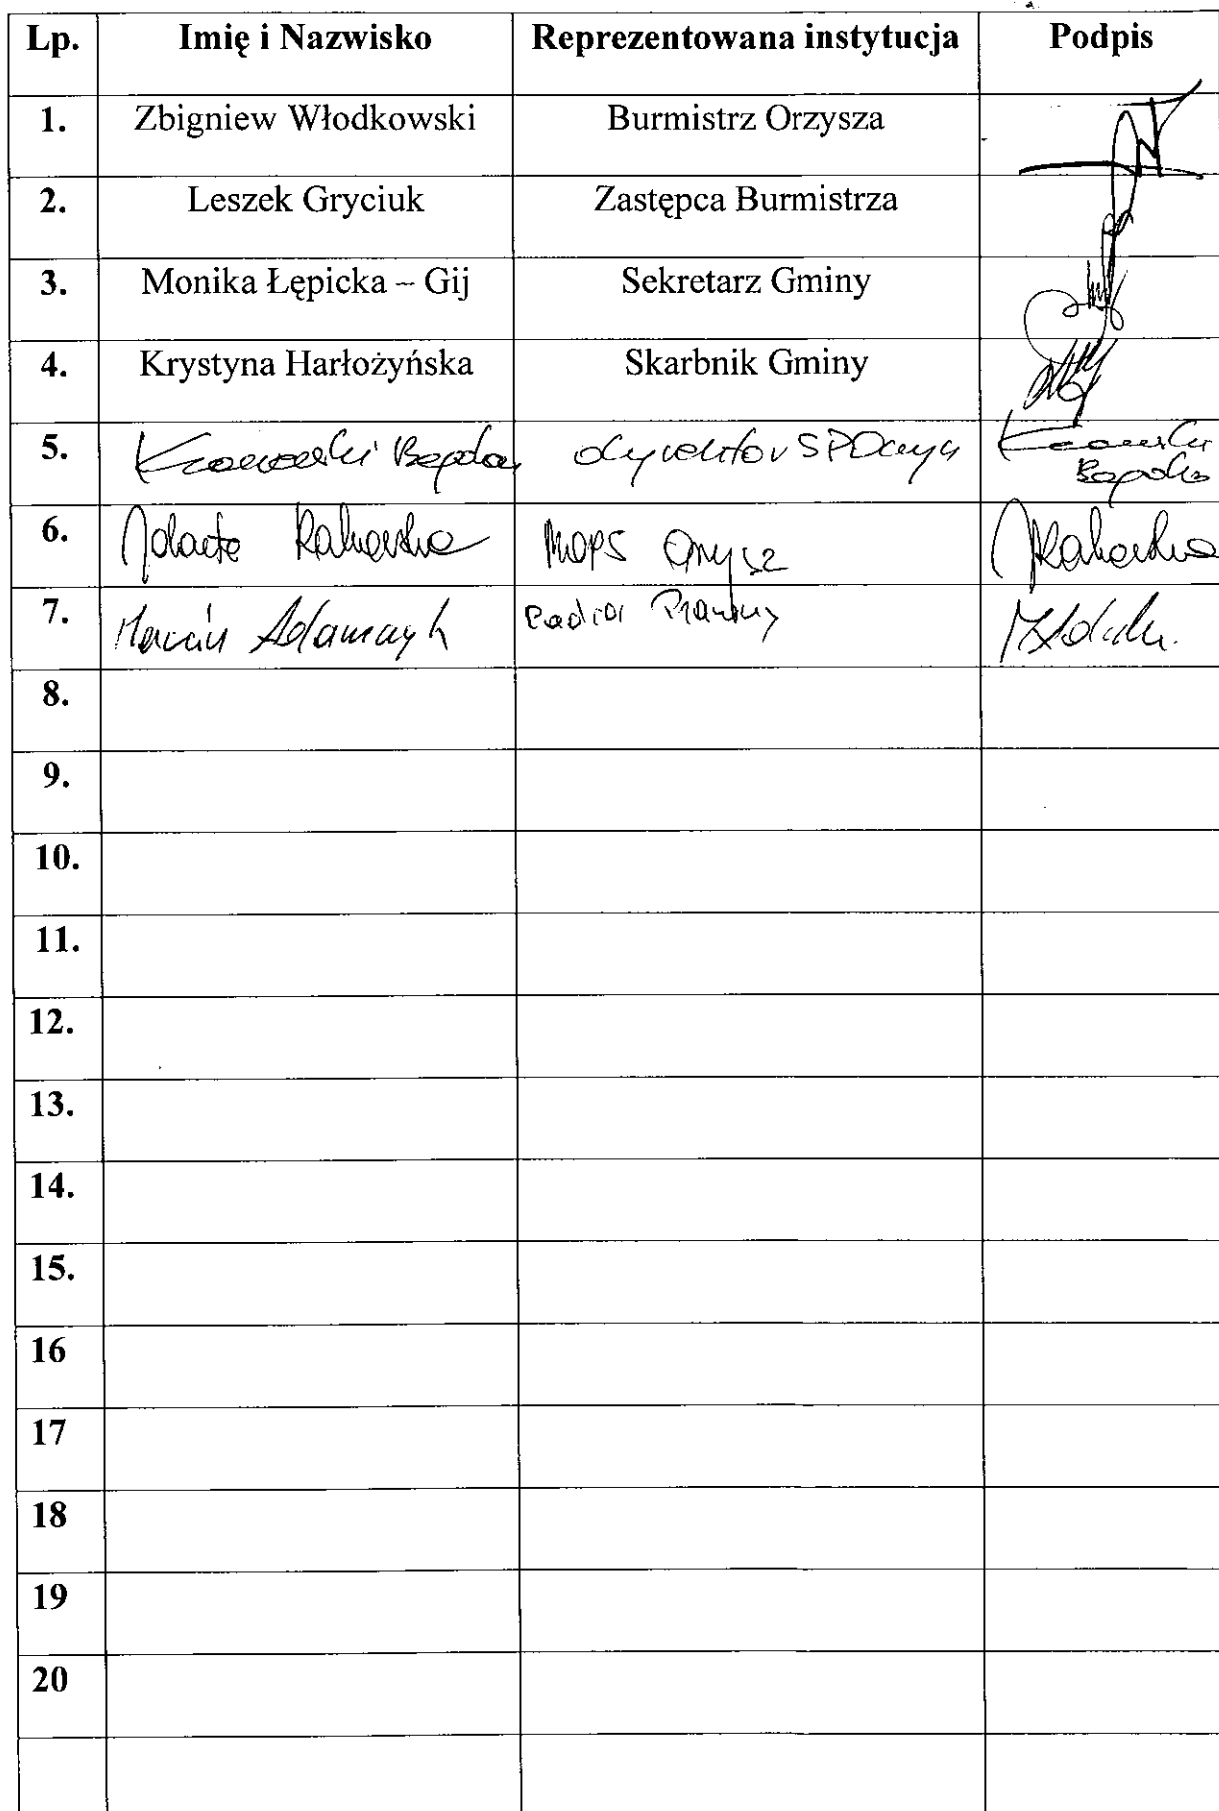 Lp. Imię i Nazwisko Reprezentowana instytucja Podpis
1. Zbigniew Włodkowski Burmistrz Orzysza
2. Leszek Gryciuk Zastępca Burmistrza
3. Monika Łępicka – Gij Sekretarz Gminy
4. Krystyna Harłożyńska Skarbnik Gminy
5. Bogdan dyrektor
6. Jolanta Rakowska MOPS Orzysz Rakowska
7. Marcin Adamczyk Radca Prawny
8.
9.
10.
11.
12.
13.
14.
15.
16
17
18
19
20